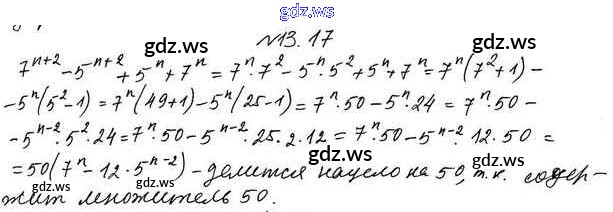 gdz.ws
№13.17
7ⁿ⁺² - 5ⁿ⁺² + 5ⁿ + 7ⁿ = 7ⁿ·7² - 5ⁿ·5² + 5ⁿ + 7ⁿ = 7ⁿ(7²+1) -
gdz.ws gdz.ws
- 5ⁿ(5²-1) = 7ⁿ(49+1) - 5ⁿ(25-1) = 7ⁿ·50 - 5ⁿ·24 = 7ⁿ·50 -
- 5ⁿ⁻²·5²·24 = 7ⁿ·50 - 5ⁿ⁻²·25·2·12 = 7ⁿ·50 - 5ⁿ⁻²·12·50 =
gdz.ws gdz.ws
= 50(7ⁿ - 12·5ⁿ⁻²) - делится нацело на 50, т.к. содер-
жит множитель 50.
gdz.ws gdz.ws
gdz.ws